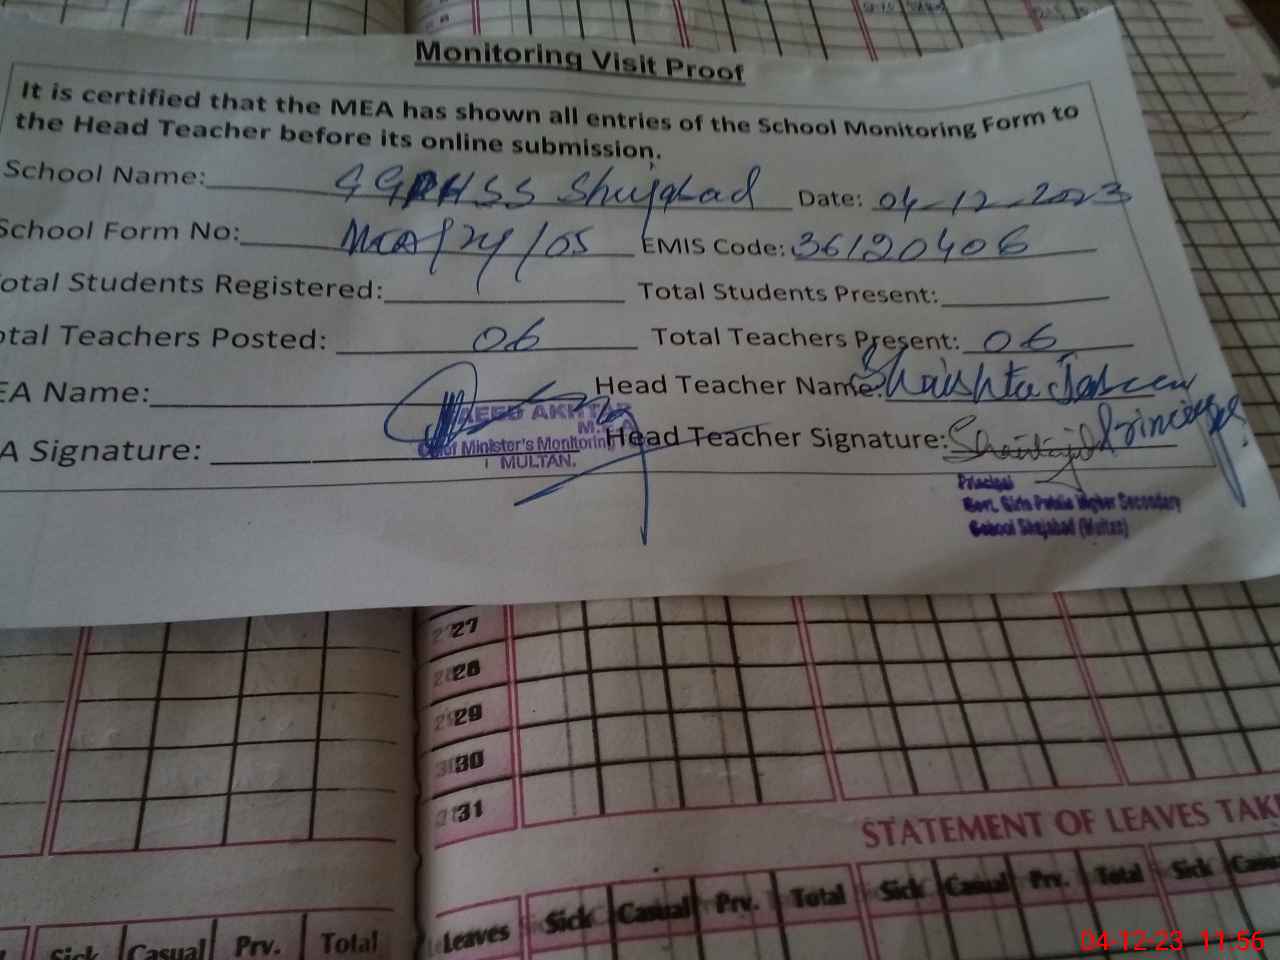 Monitoring Visit Proof
It is certified that the MEA has shown all entries of the School Monitoring Form to
the Head Teacher before its online submission.
School Name: GGPHSS Shujabad Date: 04-12-2023
School Form No: 24/05 EMIS Code: 36120406
otal Students Registered: Total Students Present:
otal Teachers Posted: 06 Total Teachers Present: 06
EA Name: Head Teacher Name: Shaishta Jabeen
A Signature: Head Teacher Signature: Principal
AEED AKHTAR
Chief Minister's Monitoring
MULTAN.
Principal
Govt. Girls Public Higher Secondary
School Shujabad (Multan)
27
28
29
30
31
STATEMENT OF LEAVES TAK
Leaves Sick Casual Prv. Total Sick Casual Prv. Total Sick Casua
Sick Casual Prv. Total
04-12-23 11:56